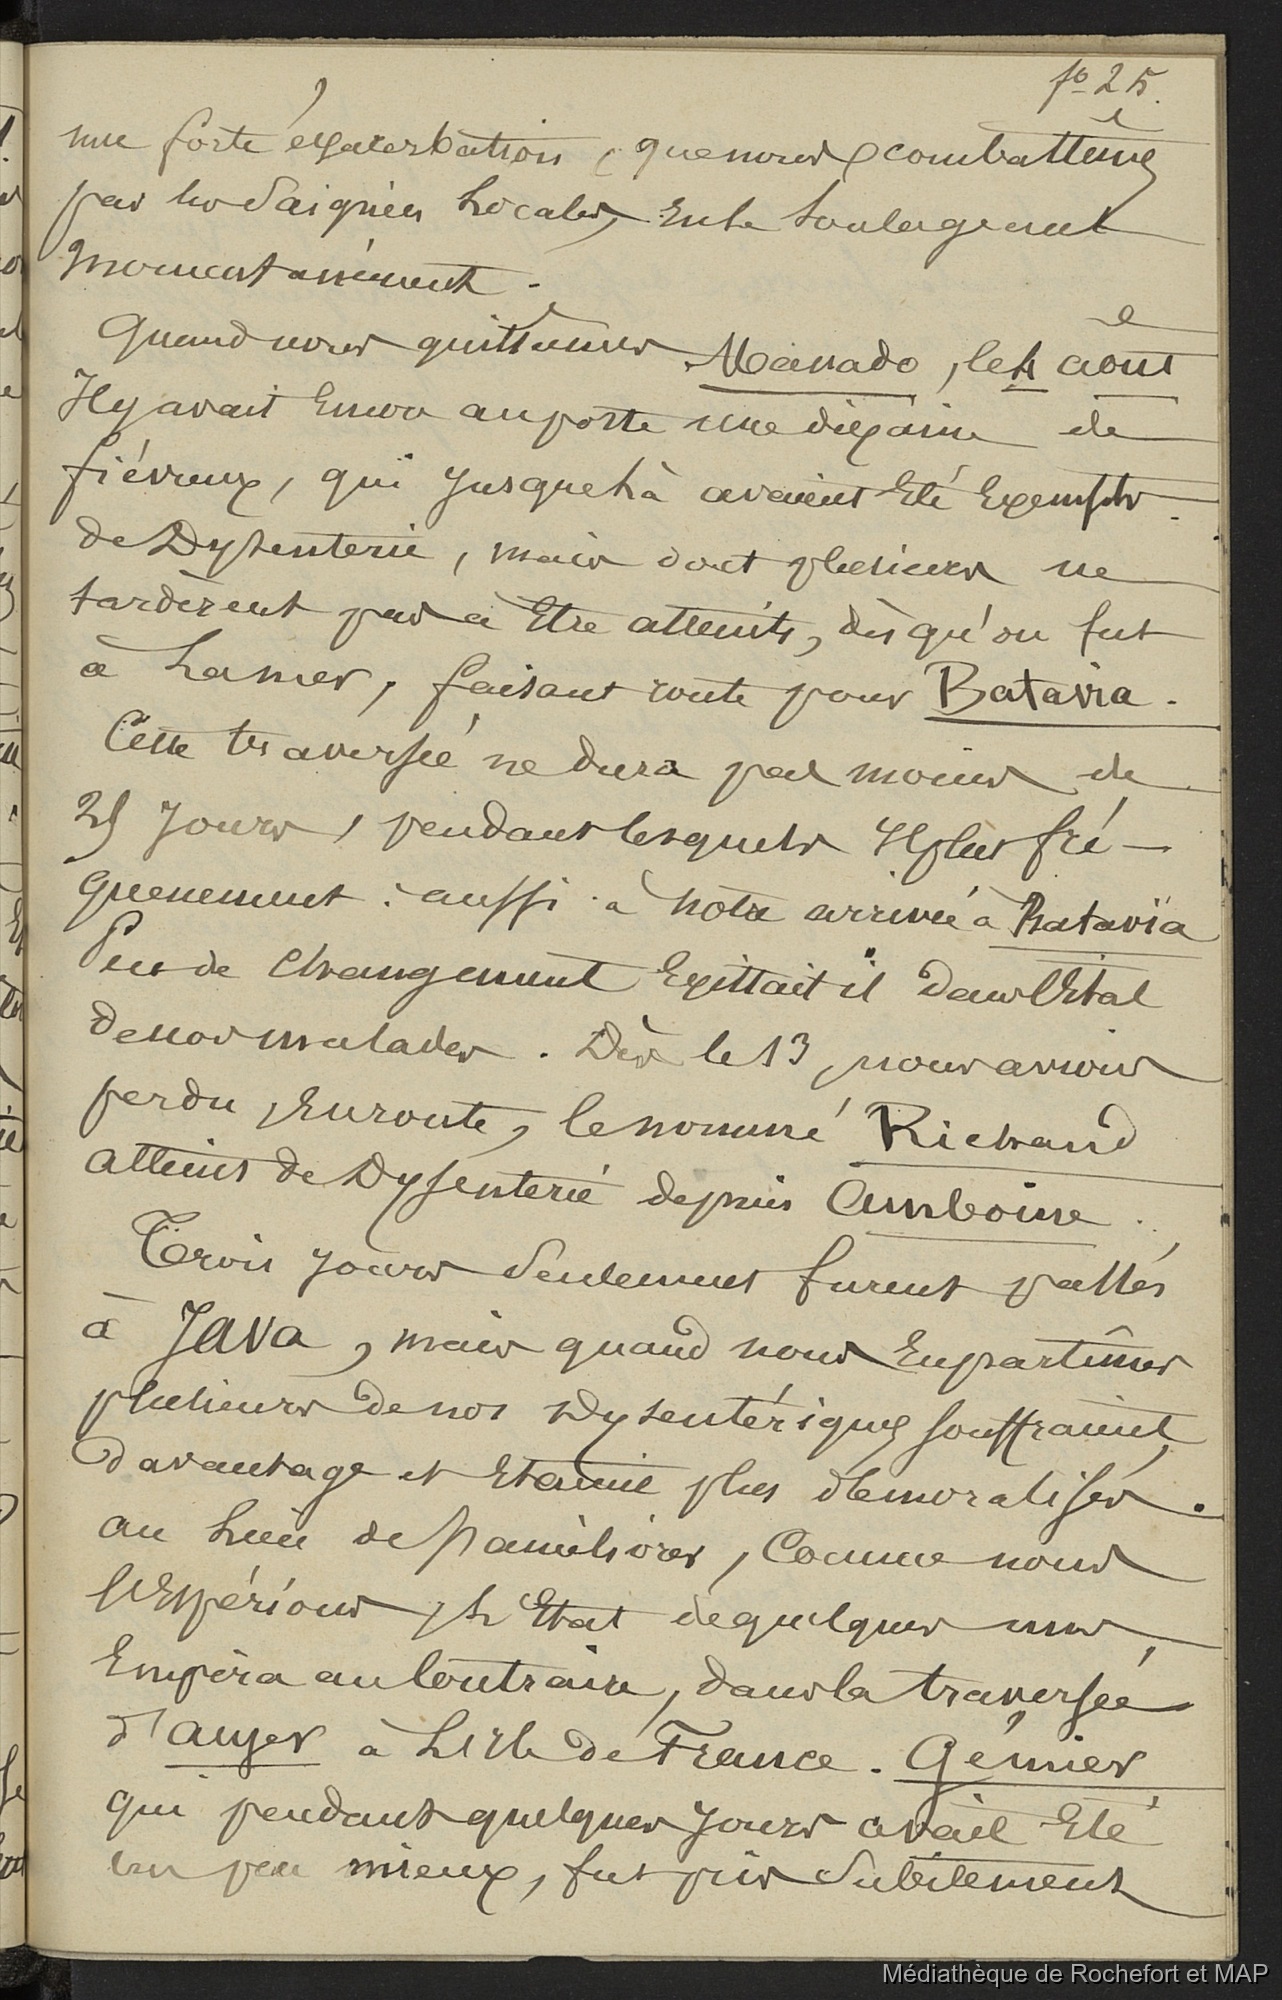 fo 25.
une forte éxacerbation, que nous combattîmes
par les Saignées Locales, En le Soulageant
Momentanément.
Quand nous quittâmes Manado, le 4 août
Il y avait Encor au poste une dixaine de
fiévreux, qui Jusque là avaient Eté Exempts
de Dysenterie, mais dont plusieurs ne
tardèrent pas à Etre atteints, dès qu'on fut
à La mer, faisant route pour Batavia.
Cette traversée ne dura pas moins de
25 Jours, pendant lesquels Il plut fré-
quemment : aussi à notre arrivée à Batavïa
Peu de Changement Existait il dans l'Etat
de nos malades. Dès le 13, nous avions
perdu, En route, le nommé Richaud
atteint de Dysenterie depuis Amboine.
Trois Jours Seulement furent passés
à Java, mais quand nous En partîmes
plusieurs de nos Dysentériques souffraient
davantage et Etaient plus démoralisés.
au Lieu de s'améliorer, Comme nous
l'Espérions, L'Etat de quelques uns,
Empira au Contraire, dans la traversée
d'anyer à L'Isle de France. Génier
qui pendant quelques Jours avait Eté
un peu mieux, fut pris Subitement
Médiathèque de Rochefort et MAP